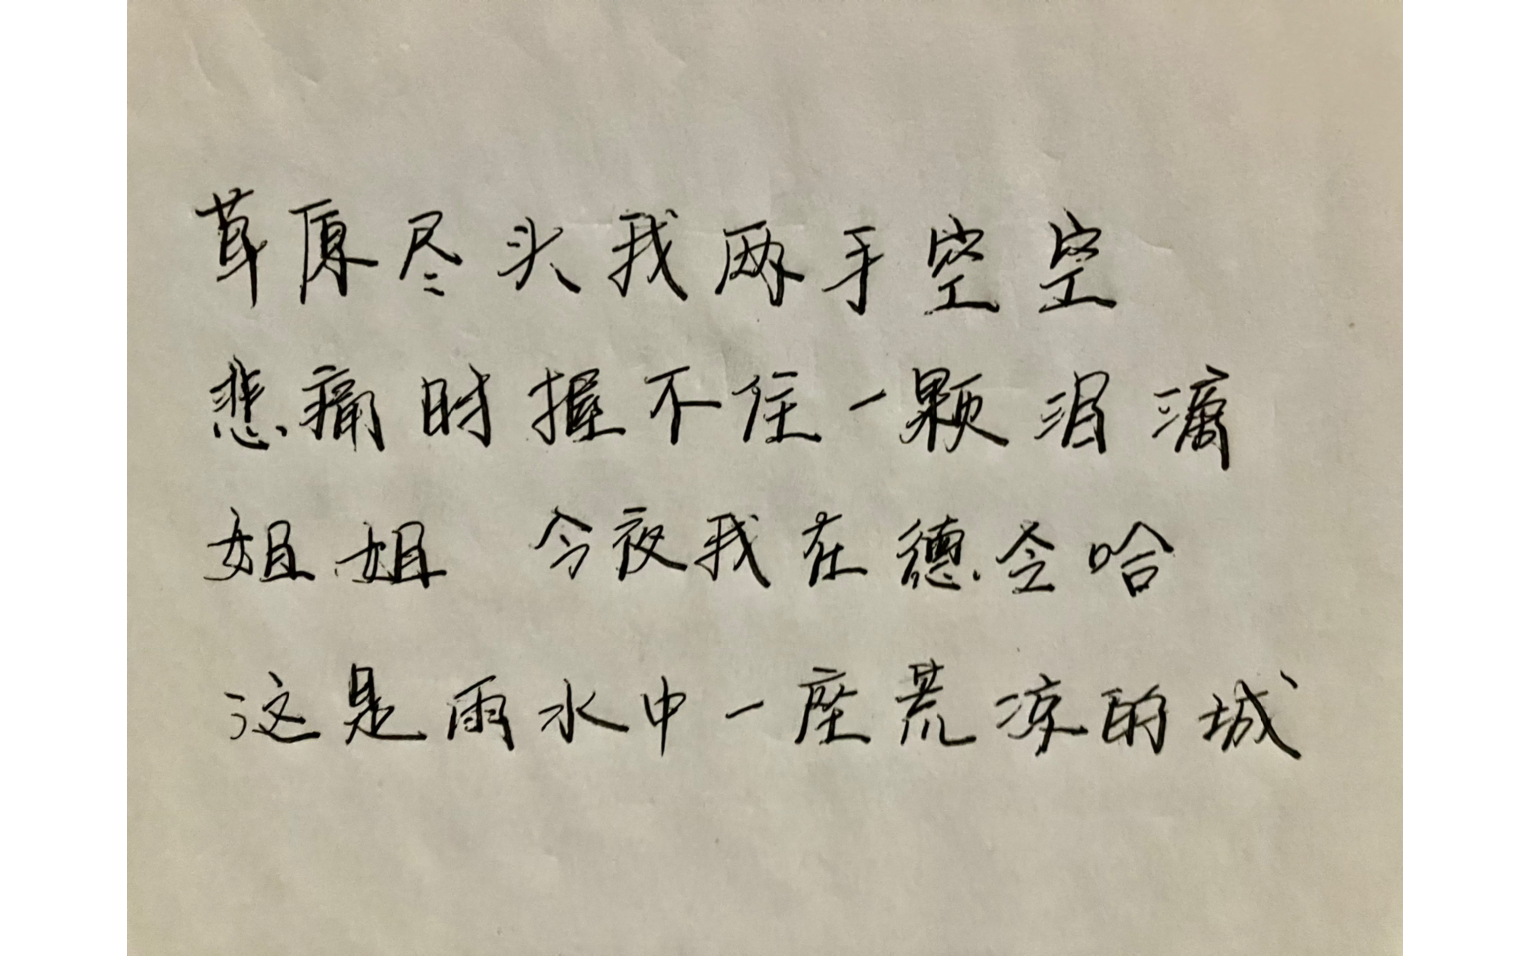 草原尽头我两手空空
悲痛时握不住一颗泪滴
姐姐 今夜我在德令哈
这是雨水中一座荒凉的城